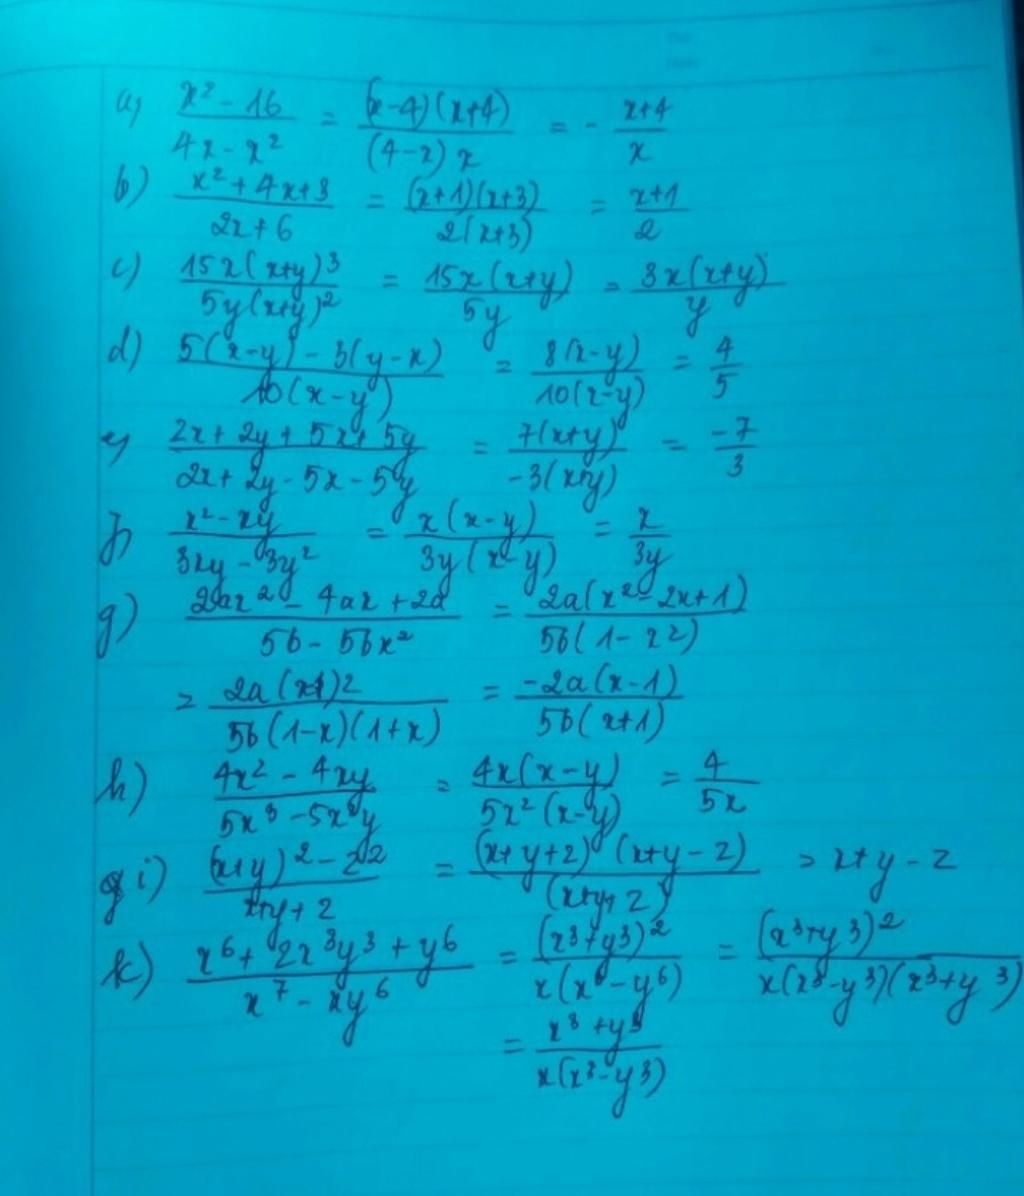 a) \frac{x² - 16}{4x - x²} = \frac{(x-4)(x+4)}{(4-x)x} = - \frac{x+4}{x}
b) \frac{x² + 4x + 3}{2x + 6} = \frac{(x+1)(x+3)}{2(x+3)} = \frac{x+1}{2}
c) \frac{15x(x+y)³}{5y(x+y)²} = \frac{15x(x+y)}{5y} = \frac{3x(x+y)}{y}
d) \frac{5(x-y) - 3(y-x)}{10(x-y)} = \frac{8(x-y)}{10(x-y)} = \frac{4}{5}
e) \frac{2x + 2y + 5x + 5y}{2x + 2y - 5x - 5y} = \frac{7(x+y)}{-3(x+y)} = \frac{-7}{3}
f) \frac{x² - xy}{3xy - 3y²} = \frac{x(x-y)}{3y(x-y)} = \frac{x}{3y}
g) \frac{2ax² - 4ax + 2a}{5b - 5bx²} = \frac{2a(x² - 2x + 1)}{5b(1 - x²)}
= \frac{2a(x-1)²}{5b(1-x)(1+x)} = \frac{-2a(x-1)}{5b(x+1)}
h) \frac{4x² - 4xy}{5x³ - 5x²y} = \frac{4x(x-y)}{5x²(x-y)} = \frac{4}{5x}
i) \frac{(x+y)² - z²}{x+y+z} = \frac{(x+y+z)(x+y-z)}{(x+y+z)} = x+y-z
k) \frac{x⁶ + 2x³y³ + y⁶}{x⁷ - xy⁶} = \frac{(x³+y³)²}{x(x⁶-y⁶)} = \frac{(x³+y³)²}{x(x³-y³)(x³+y³)}
= \frac{x³+y³}{x(x³-y³)}